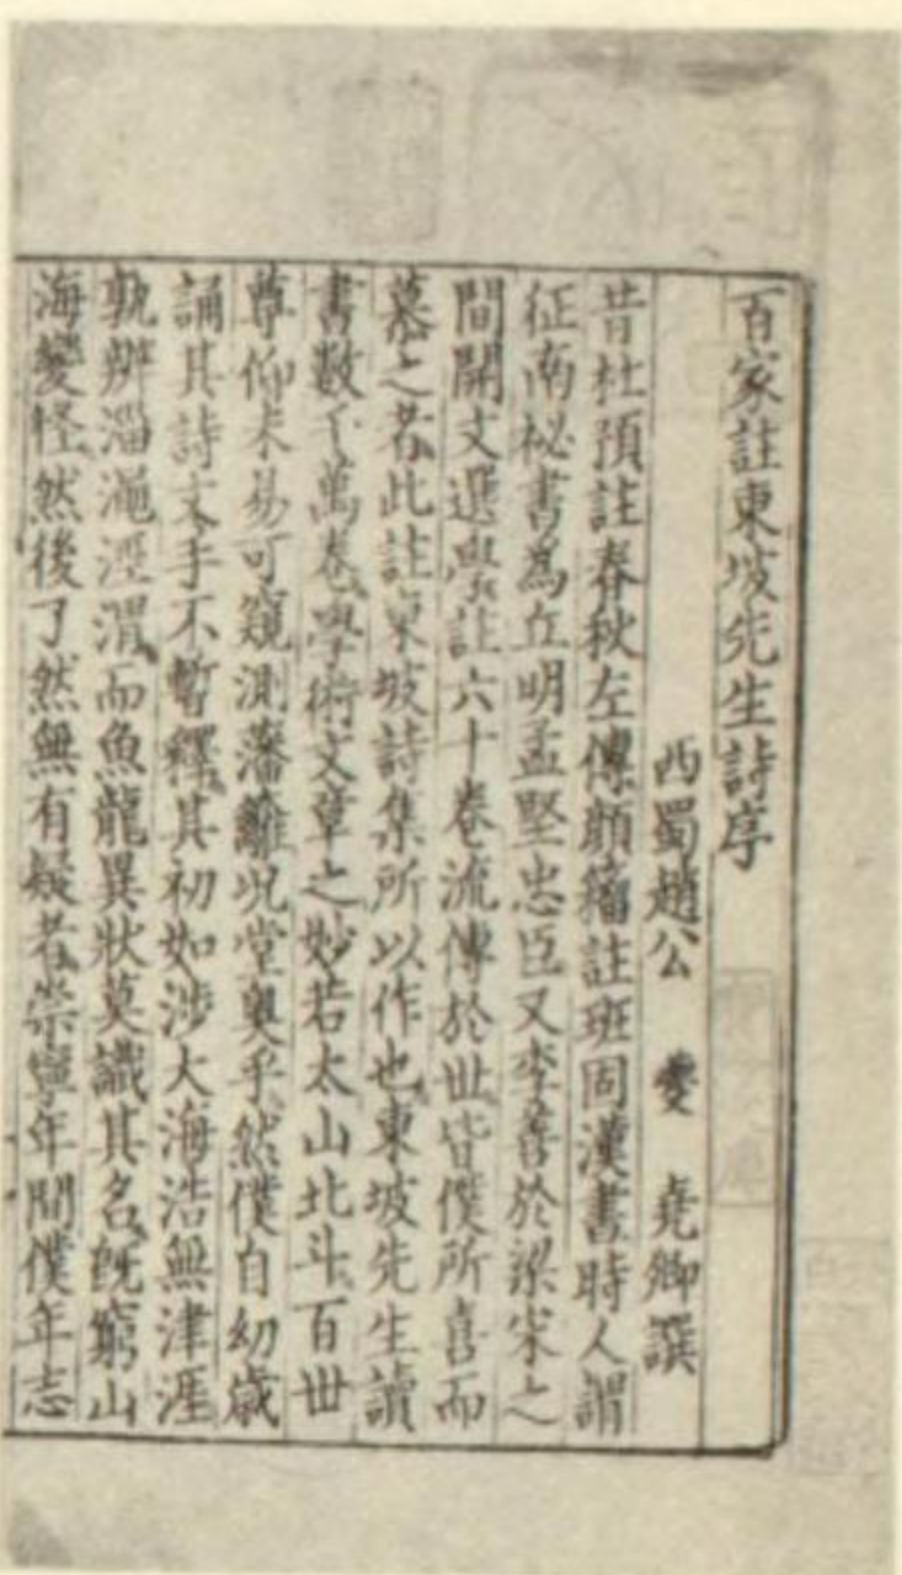 百家註東坡先生詩序
西蜀趙公 夔 堯卿譔
昔杜預註春秋左傳顔籀註班固漢書時人謂
征南秘書為丘明孟堅忠臣又李善於梁宋之
間開文選學註六十卷流傳於世皆僕所喜而
慕之者此註東坡詩集所以作也東坡先生讀
書數千萬卷學術文章之妙若太山北斗百世
尊仰未易可窺測藩籬况堂奧乎然僕自幼歲
誦其詩文手不暫釋其初如涉大海浩無津涯
孰辨淄澠涇渭而魚龍異狀莫識其名既窮山
海變怪然後了然無有疑者崇寧年間僕年志